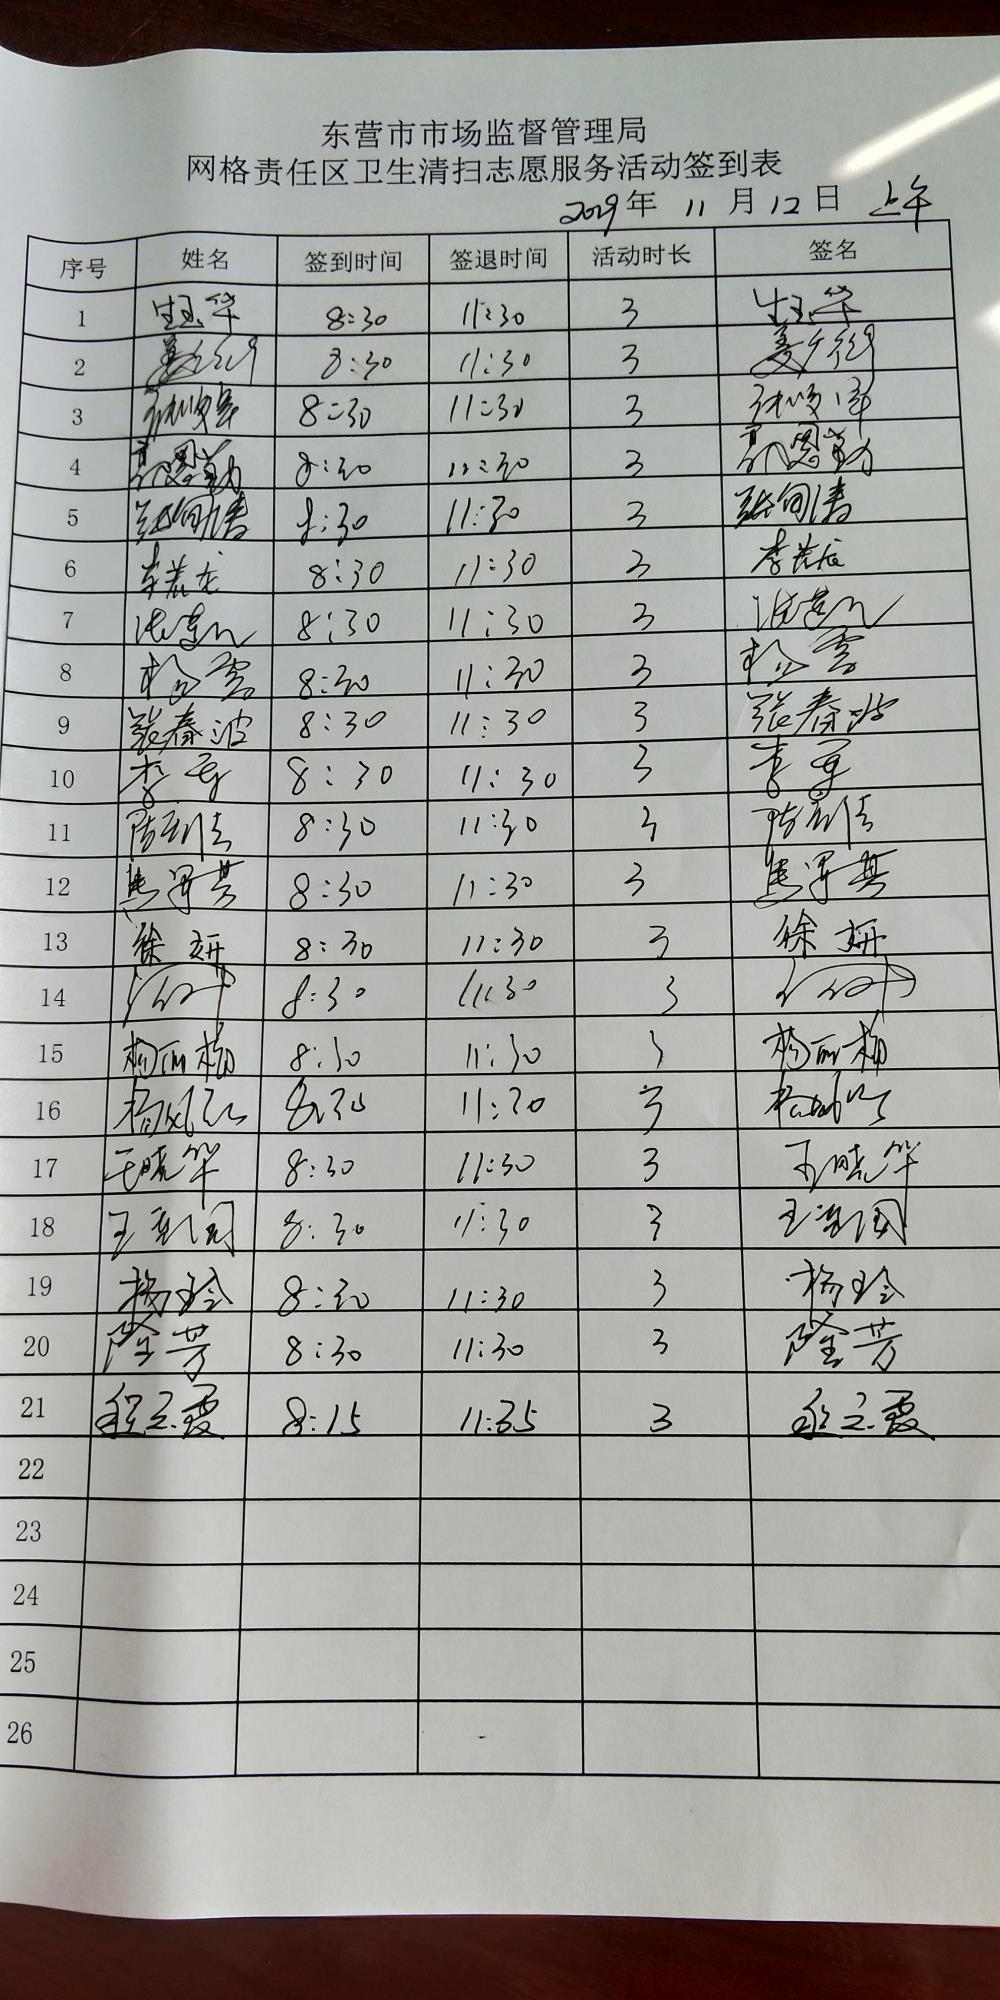 东营市市场监督管理局
网格责任区卫生清扫志愿服务活动签到表
2019年 11月12日 上午
序号 姓名 签到时间 签退时间 活动时长 签名
1 生玉华 8:30 11:30 3 生玉华
2 8:30 11:30 3
3 8:30 11:30 3
4 恩勤 8:30 11:30 3 恩勤
5 8:30 11:30 3
6 李 龙 8:30 11:30 3 李 龙
7 8:30 11:30 3
8 杨雪 8:30 11:30 3 杨雪
9 张春波 8:30 11:30 3 张春波
10 李军 8:30 11:30 3 李军
11 8:30 11:30 3
12 8:30 11:30 3
13 徐妍 8:30 11:30 3 徐妍
14 8:30 11:30 3
15 杨丽梅 8:30 11:30 3 杨丽梅
16 8:30 11:30 3
17 王晓华 8:30 11:30 3 王晓华
18 8:30 11:30 3
19 杨玲 8:30 11:30 3 杨玲
20 隆芳 8:30 11:30 3 隆芳
21 程立霞 8:15 11:35 3 程立霞
22
23
24
25
26